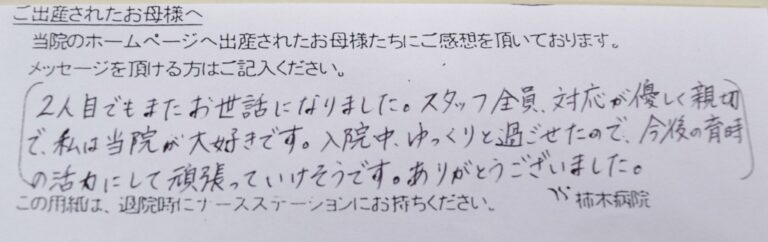 ご出産されたお母様へ
当院のホームページへ出産されたお母様たちにご感想を頂いております。
メッセージを頂ける方はご記入ください。
2人目でもまたお世話になりました。スタッフ全員、対応が優しく親切
で、私は当院が大好きです。入院中、ゆっくりと過ごせたので、今後の育時
の活力にして頑張っていけそうです。ありがとうございました。
この用紙は、退院時にナースステーションにお持ちください。 柿木病院